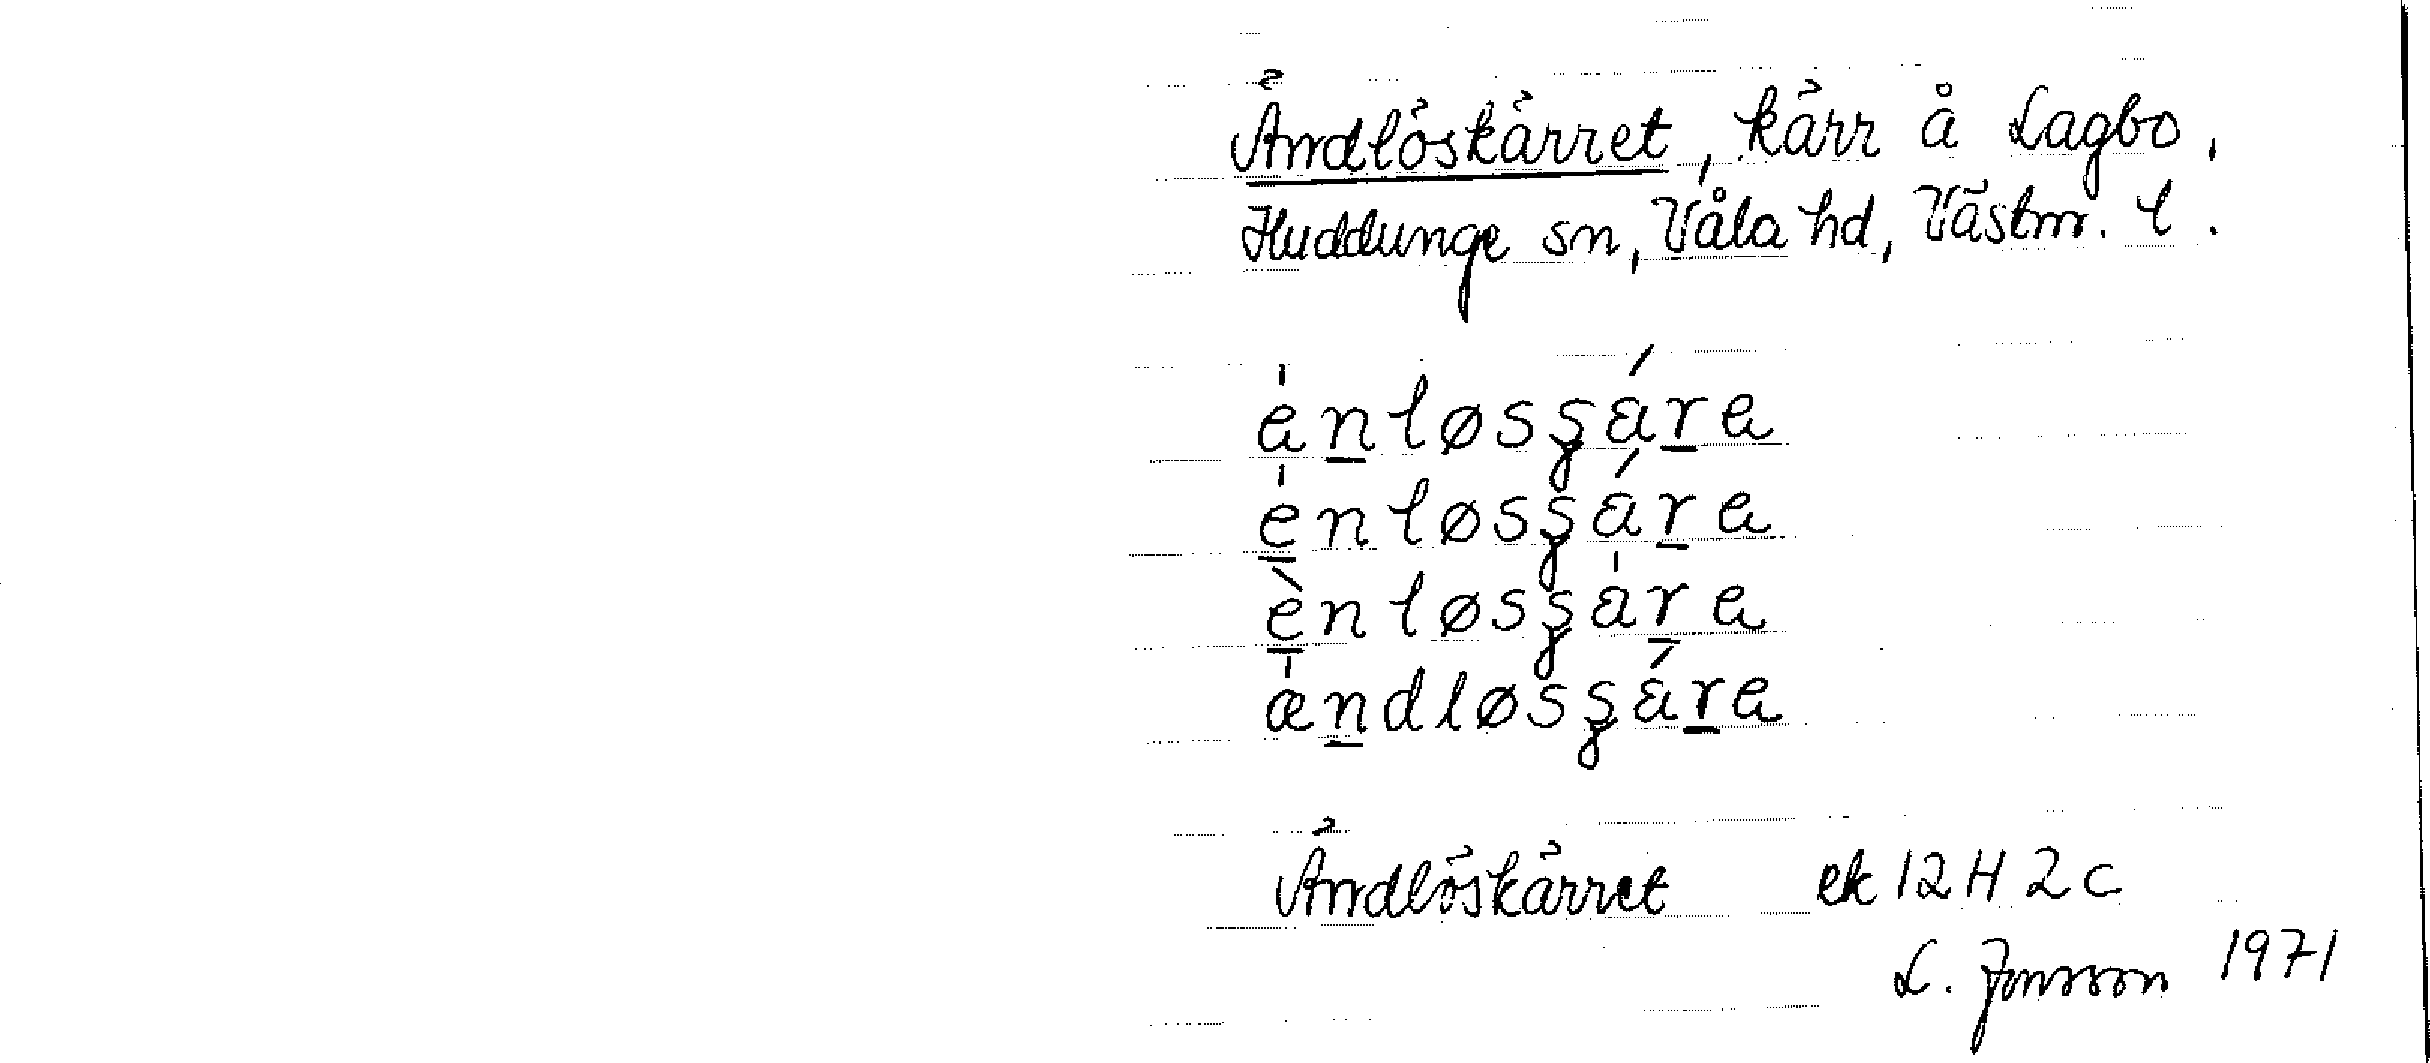 Ändlöskärret, kärr å Lagbo,
Huddunge sn, Våla hd, Västm. l.
ȧn̲løsʂár̲a
ė̲nløsʂár̲a
è̲nløsʂȧr̲a
æ̇n̲dløsʂár̲a
Ändlöskärret ek 12H2c
L. Jonsson 1971